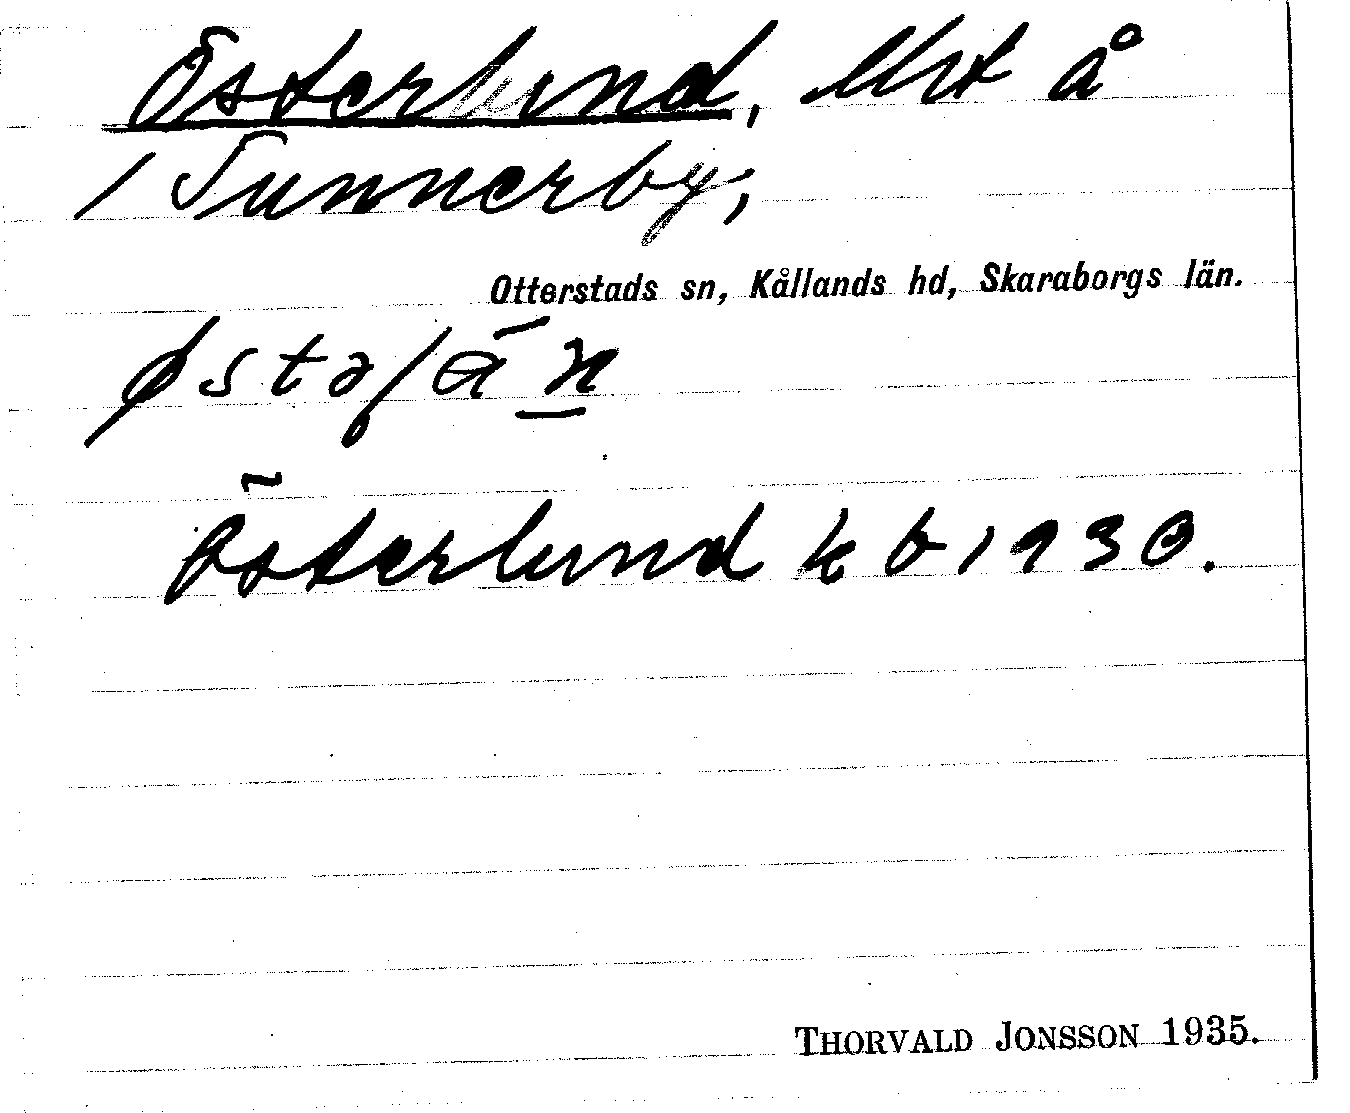 Österlund, litet å
/ Tunnerby,
Otterstads sn, Kållands hd, Skaraborgs län.
Österlund k b 1930.
THORVALD JONSSON 1935.